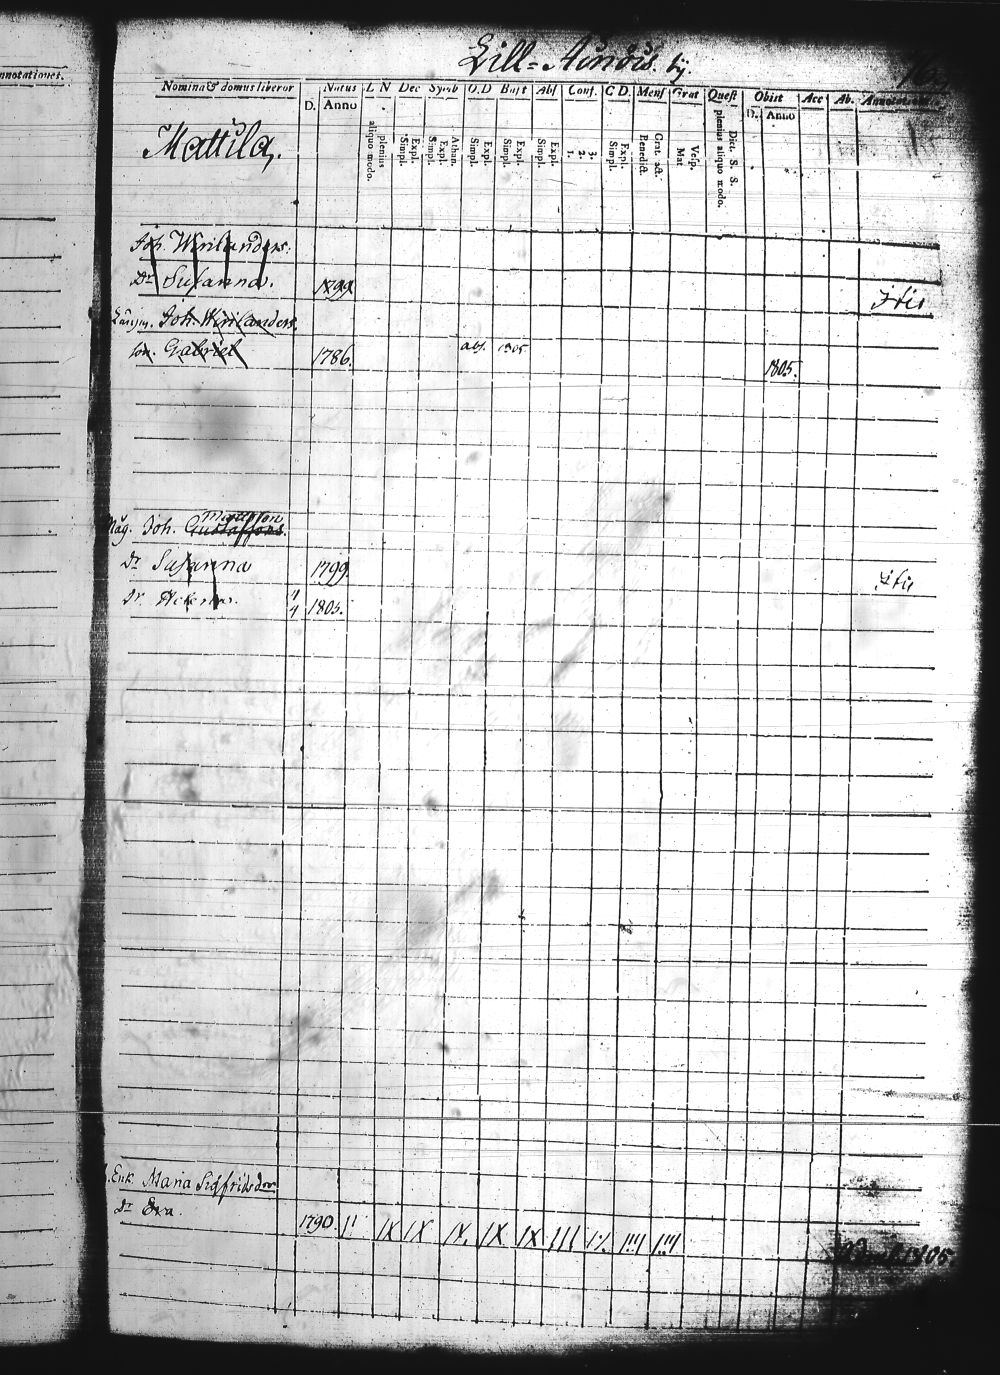 Lill-Aundis by.
nnotationes.
Nomina & domus liberor Natus L N Dec Symb O.D Bapt Abs Conf. C D. Mens Grat Quest Obiit Acc Ab. Annotationes
D. Anno D. Anno
plenius aliquo modo. Expl. Simpl. Athan. Expl. Simpl. Expl. Simpl. Expl. Simpl. Expl. Simpl. 3. 2. 1. Expl. Simpl. Grat. act. Benedict. Vesp. Mat Dict. S. S. plenius aliquo modo.
Mattila.
Joh. Winlanders.
Dr Susanna. 1799
Joh. Winlanders.
Son. Gabriel 1786. abs. 1805. 1805.
Måg. Joh. Gustafsons. Mattsson
Dr Susanna 1799
Dr. Helena. 11/4 1805.
Enk. Maria Sigfridsdor
Dr Eva. 1790.
1805.